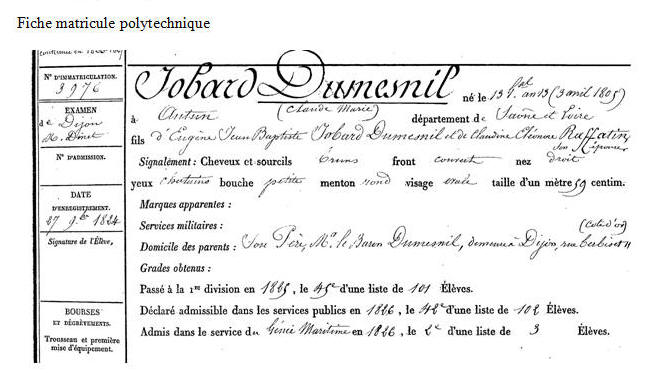 Fiche matricule polytechnique
N° D'IMMATRICULATION.
3976
EXAMEN
de Dijon
M. Dinet
N° D'ADMISSION.
DATE
D'ENREGISTREMENT.
27 9.bre 1824
Signature de l'Élève,
BOURSES
ET DÉGRÈVEMENTS.
Trousseau et première
mise d'équipement.
Jobard Dumesnil
(Claude Marie)
né le 13 g.al an 13 (3 avril 1805)
à Autun département de Saône et Loire
fils d'Eugène Jean Baptiste Jobard Dumesnil et de Claudine Eléonore Raffatin,
son Epouse
Signalement : Cheveux et sourcils bruns front couvert nez droit
yeux chatains bouche petite menton rond visage ovale taille d'un mètre 59 centim.
Marques apparentes :
Services militaires :
(Cote d'or)
Domicile des parents : Son Père, Mr. le Baron Dumesnil, demeure à Dijon, rue
Grades obtenus :
Passé à la 1re division en 1825, le 45e d'une liste de 101 Élèves.
Déclaré admissible dans les services publics en 1826, le 42e d'une liste de 102 Élèves.
Admis dans le service du Génie Maritime en 1826, le 2e d'une liste de 3 Élèves.